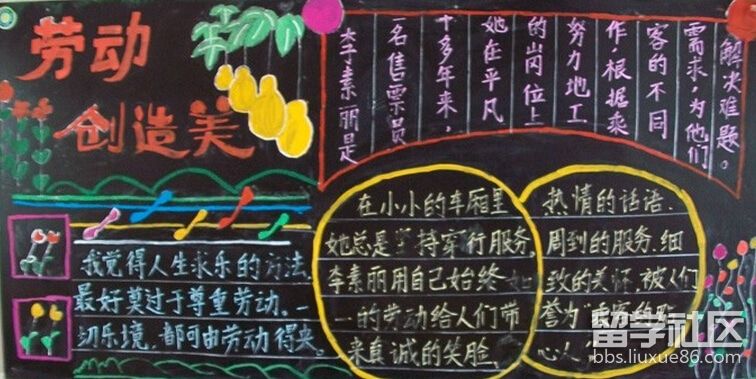 劳动
创造美
李素丽是
一名售票员
十多年来，
她在平凡
的岗位上
努力地工
作，根据乘
客的不同
需求，为他们
解决难题。
我觉得人生求乐的方法
最好莫过于尊重劳动。一
切乐境，都可由劳动得来。
在小小的车厢里
她总是坚持穿行服务，
李素丽用自己始终如
一的劳动给人们带
来真诚的笑脸、
热情的话语、
周到的服务、细
致的关怀，被人们
誉为"
心人
留学社区
bbs.liuxue86.com